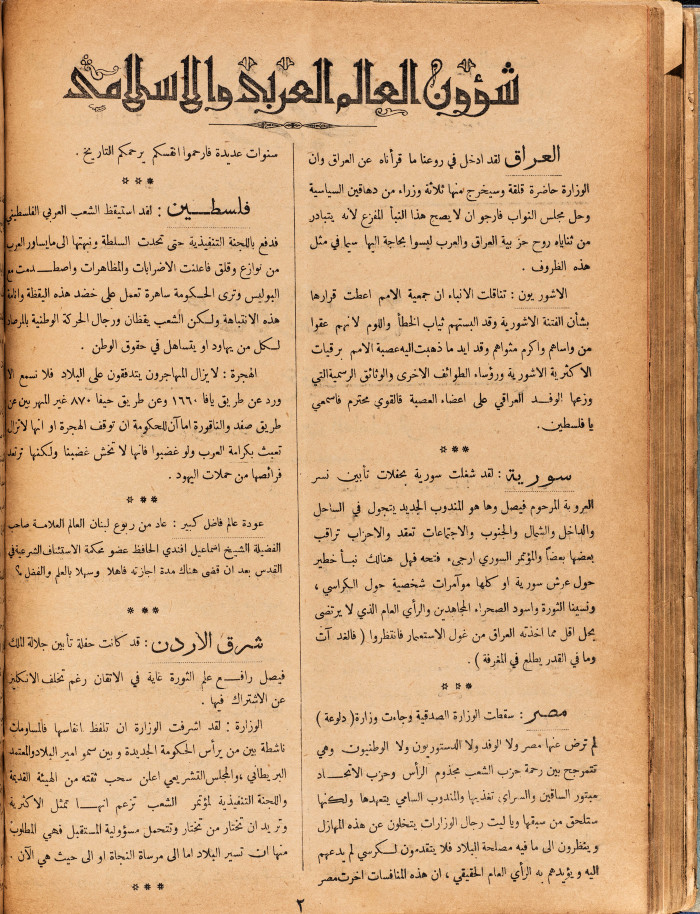 شؤون العالم العربي والاسلامي
العراق لقد ادخل في روعنا ما قرأناه عن العراق وان
الوزارة حاضرة قلقة وسيخرج منها ثلاثة وزراء من دهاقين السياسية
وحل مجلس النواب فارجو ان لا يصح هذا النبأ المفزع لأنه يتبادر
من ثناياه روح حز بية العراق والعرب ليسوا بحاجة اليها سيا في مثل
هذه الظروف .
الاشور يون : تناقلت الانباء ان جمعية الامم اعطت قرارها
بشأن الفتنة الاشورية وقد البستهم ثياب الخطأ واللوم لانهم عقوا
من واساهم واكرم مثواهم وقد ايد ما ذهبت اليه عصبة الامم برقيات
الأكثرية الاشورية ورؤساء الطوائف الاخرى والوثائق الرسمية التي
وزعها الوفد العراقي على اعضاء العصبة فالقوي محترم فاسمعي
يا فلسطين .
***
سورية : لقد شغلت سورية بحفلات تأبين نسر
العروبة المرحوم فيصل وها هو المندوب الجديد يتجول في الساحل
والداخل والشمال والجنوب والاجتماعات تعقد والاحزاب تراقب
بعضها بعضاً والمؤتمر السوري ارجىء فتحه فهل هنالك نبأ خطير
حول عرش سورية او كلها مؤآمرات شخصية حول الكراسي ،
ونسينا الثورة واسود الصحراء المجاهدين والرأي العام الذي لا يرتضى
بحل اقل مما اخذته العراق من غول الاستعمار فانتظروا ( فالغد آت
وما في القدر يطلع في المغرفة ) .
***
مصر : سقطت الوزارة الصدقية وجاءت وزارة ( دلوعة )
لم ترض عنها مصر ولا الوفد ولا الدستوريون ولا الوطنيون وهي
تتمرجح بين رحمة حزب الشعب مجذوم الرأس وحزب الاتحاد
مبتور الساقين والسراي تغذيها والمندوب السامي يتعهدها ولكنها
ستلحق من سبقها ويا ليت رجال الوزارات يتخلون عن هذه المهازل
و ينظرون الى ما فيه مصلحة البلاد فلا يتقدمون لكرسي لم يدعهم
اليه و يؤيدهم به الرأي العام الحقيقي ، ان هذه المنافسات اخرت مصر
سنوات عديدة فارحموا انفسكم يرحمكم التاريخ .
***
فلسطين : لقد استيقظ الشعب العربي الفلسطيني
فدفع باللجنة التنفيذية حتى تحدت السلطة ونبهتها الى ما يساور العرب
من نوازع وقلق فاعلنت الاضرابات والمظاهرات واصطدمت مع
البوليس وترى الحكومة ساهرة تعمل على خضد هذه اليقظة واناة
هذه الانتباهة ولكن الشعب يقظان ورجال الحركة الوطنية بالمرصاد
لكل من يهاود او يتساهل في حقوق الوطن .
الهجرة : لا يزال المهاجرون يتدفقون على البلاد فلا نسمع الا
ورد عن طريق يافا ١٦٦٠ وعن طريق حيفا ٨٧٠ غير المهربين عن
طريق صفد والناقورة اما آن للحكومة ان توقف الهجرة او انها لا تزال
تعبث بكرامة العرب ولو غضبوا فانها لا تخش غضبنا ولكنها ترتعد
فرائصها من حملات اليهود .
***
عودة عالم فاضل كبير : عاد من ربوع لبنان العالم العلامة صاحب
الفضيلة الشيخ اسماعيل افندي الحافظ عضو محكمة الاستئناف الشرعية في
القدس بعد ان قضى هناك مدة اجازته فاهلا وسهلا بالعلم والفضل ؟
***
شرق الاردن : قد كانت حفلة تأبين جلالة الملك
فيصل رافع علم الثورة غاية في الاتقان رغم تخلف الانكليز
عن الاشتراك فيها .
الوزارة : لقد اشرفت الوزارة ان تلفظ انفاسها فالمساومات
ناشطة بين من يرأس الحكومة الجديدة و بين سمو امير البلاد والمعتمد
البريطاني ، والمجلس التشريعي اعلن سحب ثقته من الهيئة القديمة
واللجنة التنفيذية لمؤتمر الشعب تزعم انها تمثل الاكثرية
وتريد ان تختار من تختار وتتحمل مسؤولية المستقبل فهي المطلوب
منها ان تسير البلاد اما الى مرساة النجاة او الى حيث هي الآن .
***
٢